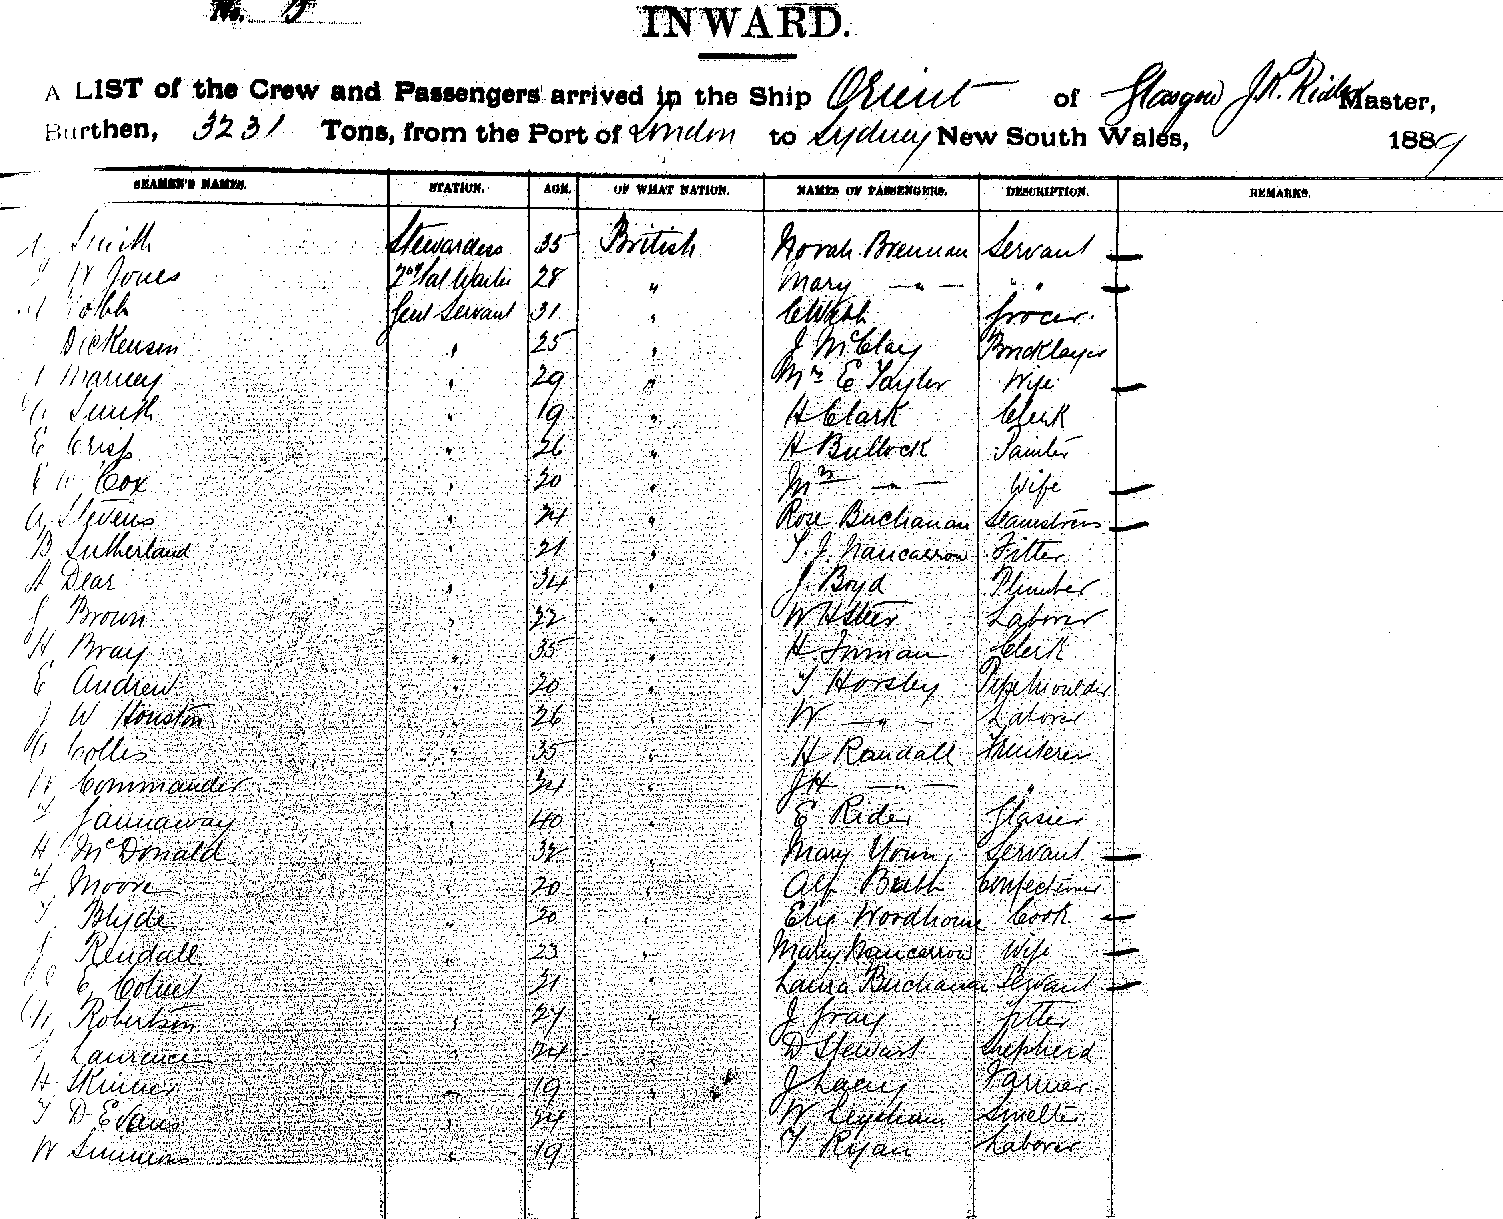 No.
INWARD.
A LIST of the Crew and Passengers arrived in the Ship Orient of Glasgow J.F. Master,
Burthen, 3231 Tons, from the Port of London to Sydney New South Wales, 1889
SEAMEN'S NAMES. STATION. AGE. OF WHAT NATION. NAMES OF PASSENGERS. DESCRIPTION. REMARKS.
Smith Stewardess 35 British Norah Brennan Servant —
W Jones 28 " Mary — " — " " —
Genl Servant 31 " C Webb Grocer.
Dickenson " 25 " J McClay Bricklayer
Marney " 29 " Mrs E Taylor Wife —
Smith " 19 " H Clark Clerk
E Crisp " 26 " H Bullock Painter
E W Cox " 20 " Mrs — " — Wife —
A Stevens " 24 " Rose Buchanan Seamstress —
B Sutherland " 21 " T. J. Nancarrow Fitter
A Dear " 34 " J. Boyd Plumber
J Brown " 22 " W Laborer
H Bray " 35 " H Inman Clerk
E Andrew " 20 " T Horsby Pipe Moulder
J W Houston " 26 " W — " — Laborer
Collis " 35 " H Randall Fruiterer
W Commander " 24 " J H — " — "
F Jannaway " 40 " E Rider Glasier
H McDonald " 32 " Mary Young Servant —
F Moore " 20 " Alf Bubb Confectioner
F Blyde " 20 " Eliz Woodhouse Cook —
J Rendall " 23 " Mary Nancarrow Wife —
E " 21 " Laura Buchanan Servant —
Robertson " 27 " J Gray Fitter
Laurence " 24 " D Stewart Shepherd
H Skinner " 19 " J Lacey Farmer
F D Evans " 24 " W Smelter
W Simmons " 19 " T Ryan Laborer